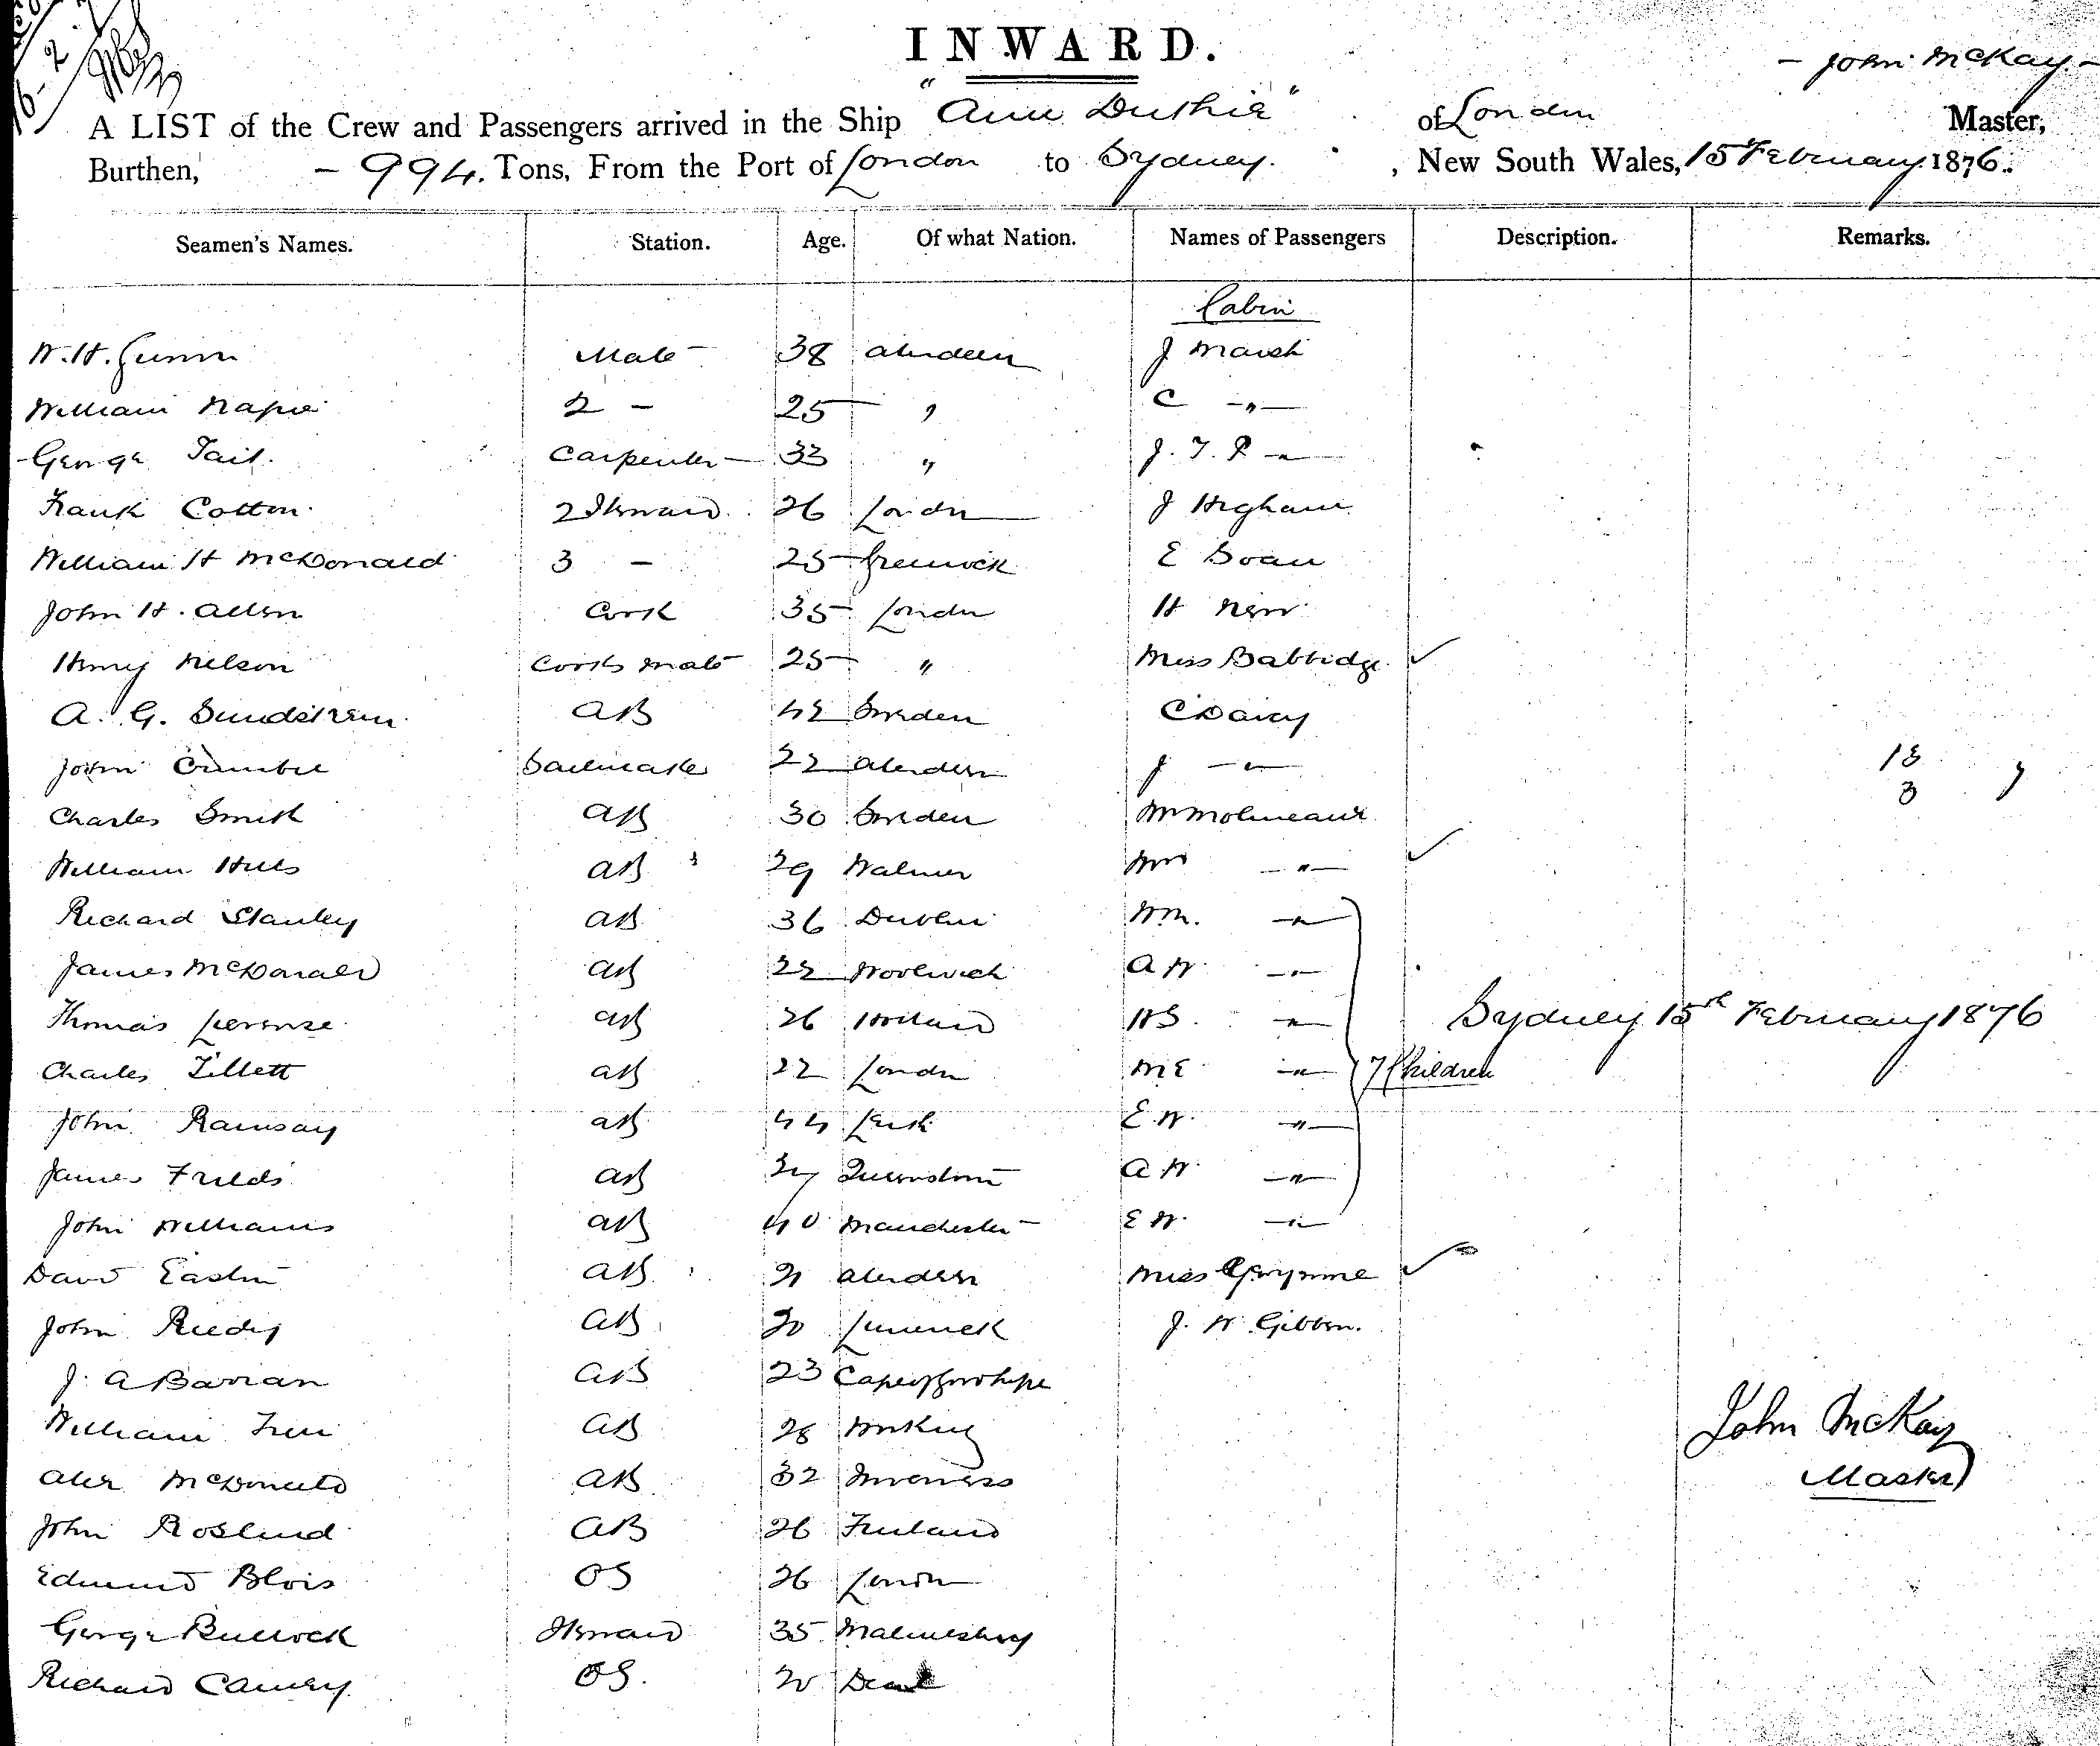 INWARD.
- John McKay -
A LIST of the Crew and Passengers arrived in the Ship "Ann Duthie" of London Master,
Burthen, - 994. Tons, From the Port of London to Sydney. , New South Wales, 15 February 1876.
Seamen's Names. Station. Age. Of what Nation. Names of Passengers Description. Remarks.
Cabin
W. H. Gunn Mate 38 Aberdeen J Marsh
William Napier 2 - 25 " C -"-
George Tait. Carpenter 33 " J. T. R -"-
Frank Cotton 2 Steward 26 London J Higham
William H McDonald 3 - 25 Greenock E Doan
John H. Allen Cook 35 London H New
Henry Nelson Cooks Mate 25 " Miss Babbidge ✓
A. G. Sundstrem AB 42 Sweden C Davey
John Crumbie Sailmaker 22 Aberdeen J -"- 18
3
Charles Smith AB 30 Sweden Mr Molineaux
William Hills AB 29 Walmer Mrs -"- ✓
Richard Stanley AB 36 Dublin Wm. -"-
James McDonald AB 22 Woolwich A W. -"-
Thomas AB 26 Holland HS. -"- Sydney 15th February 1876
Charles Tillett AB 22 London M E -"- 7 Children
John Ramsay AB 44 Leith E. W. -"-
James Fields AB 27 Queenstown A W. -"-
John Williams AB 40 Manchester E W. -"-
David Easton AB 21 Aberdeen Miss Gwynne ✓
John Reedy AB 20 Limerick J. W. Gibbon.
J. A Barran AB 23 Cape of Good Hope
William AB 28 John McKay
Alex McDonald AB 32 Inverness Master
John Roslund AB 26 Finland
Edmund Blois OS 26 London
George Bullock Steward 35 Malmesbury
Richard OS. 20 Deal